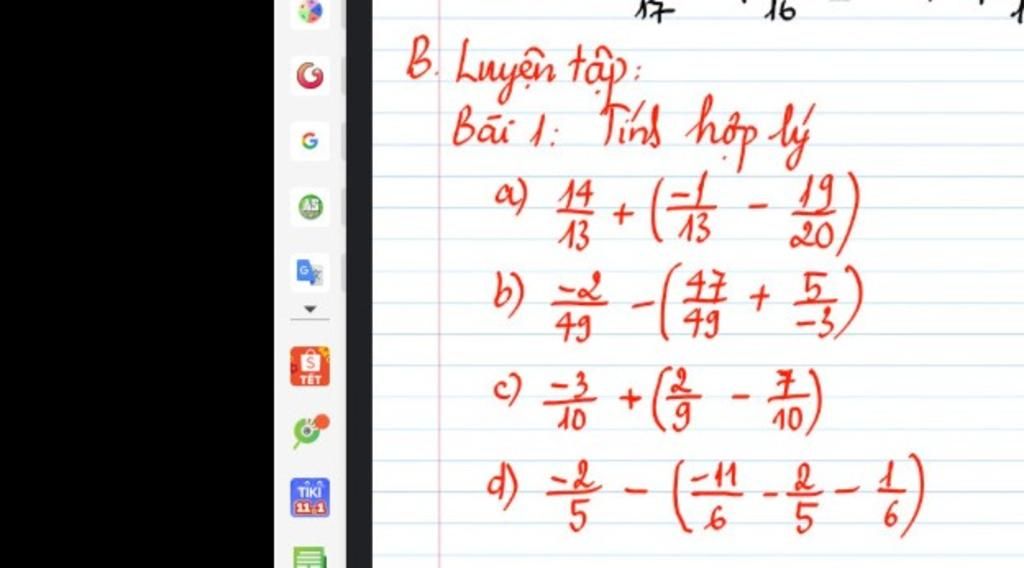 17 16
B. Luyện tập:
Bài 1: Tính hợp lý
a) 14/13 + (-1/13 - 19/20)
b) -2/49 - (47/49 + 5/-3)
c) -3/10 + (2/9 - 7/10)
d) -2/5 - (-11/6 - 2/5 - 1/6)
G
AS
G
S
TẾT
TIKI
11.1